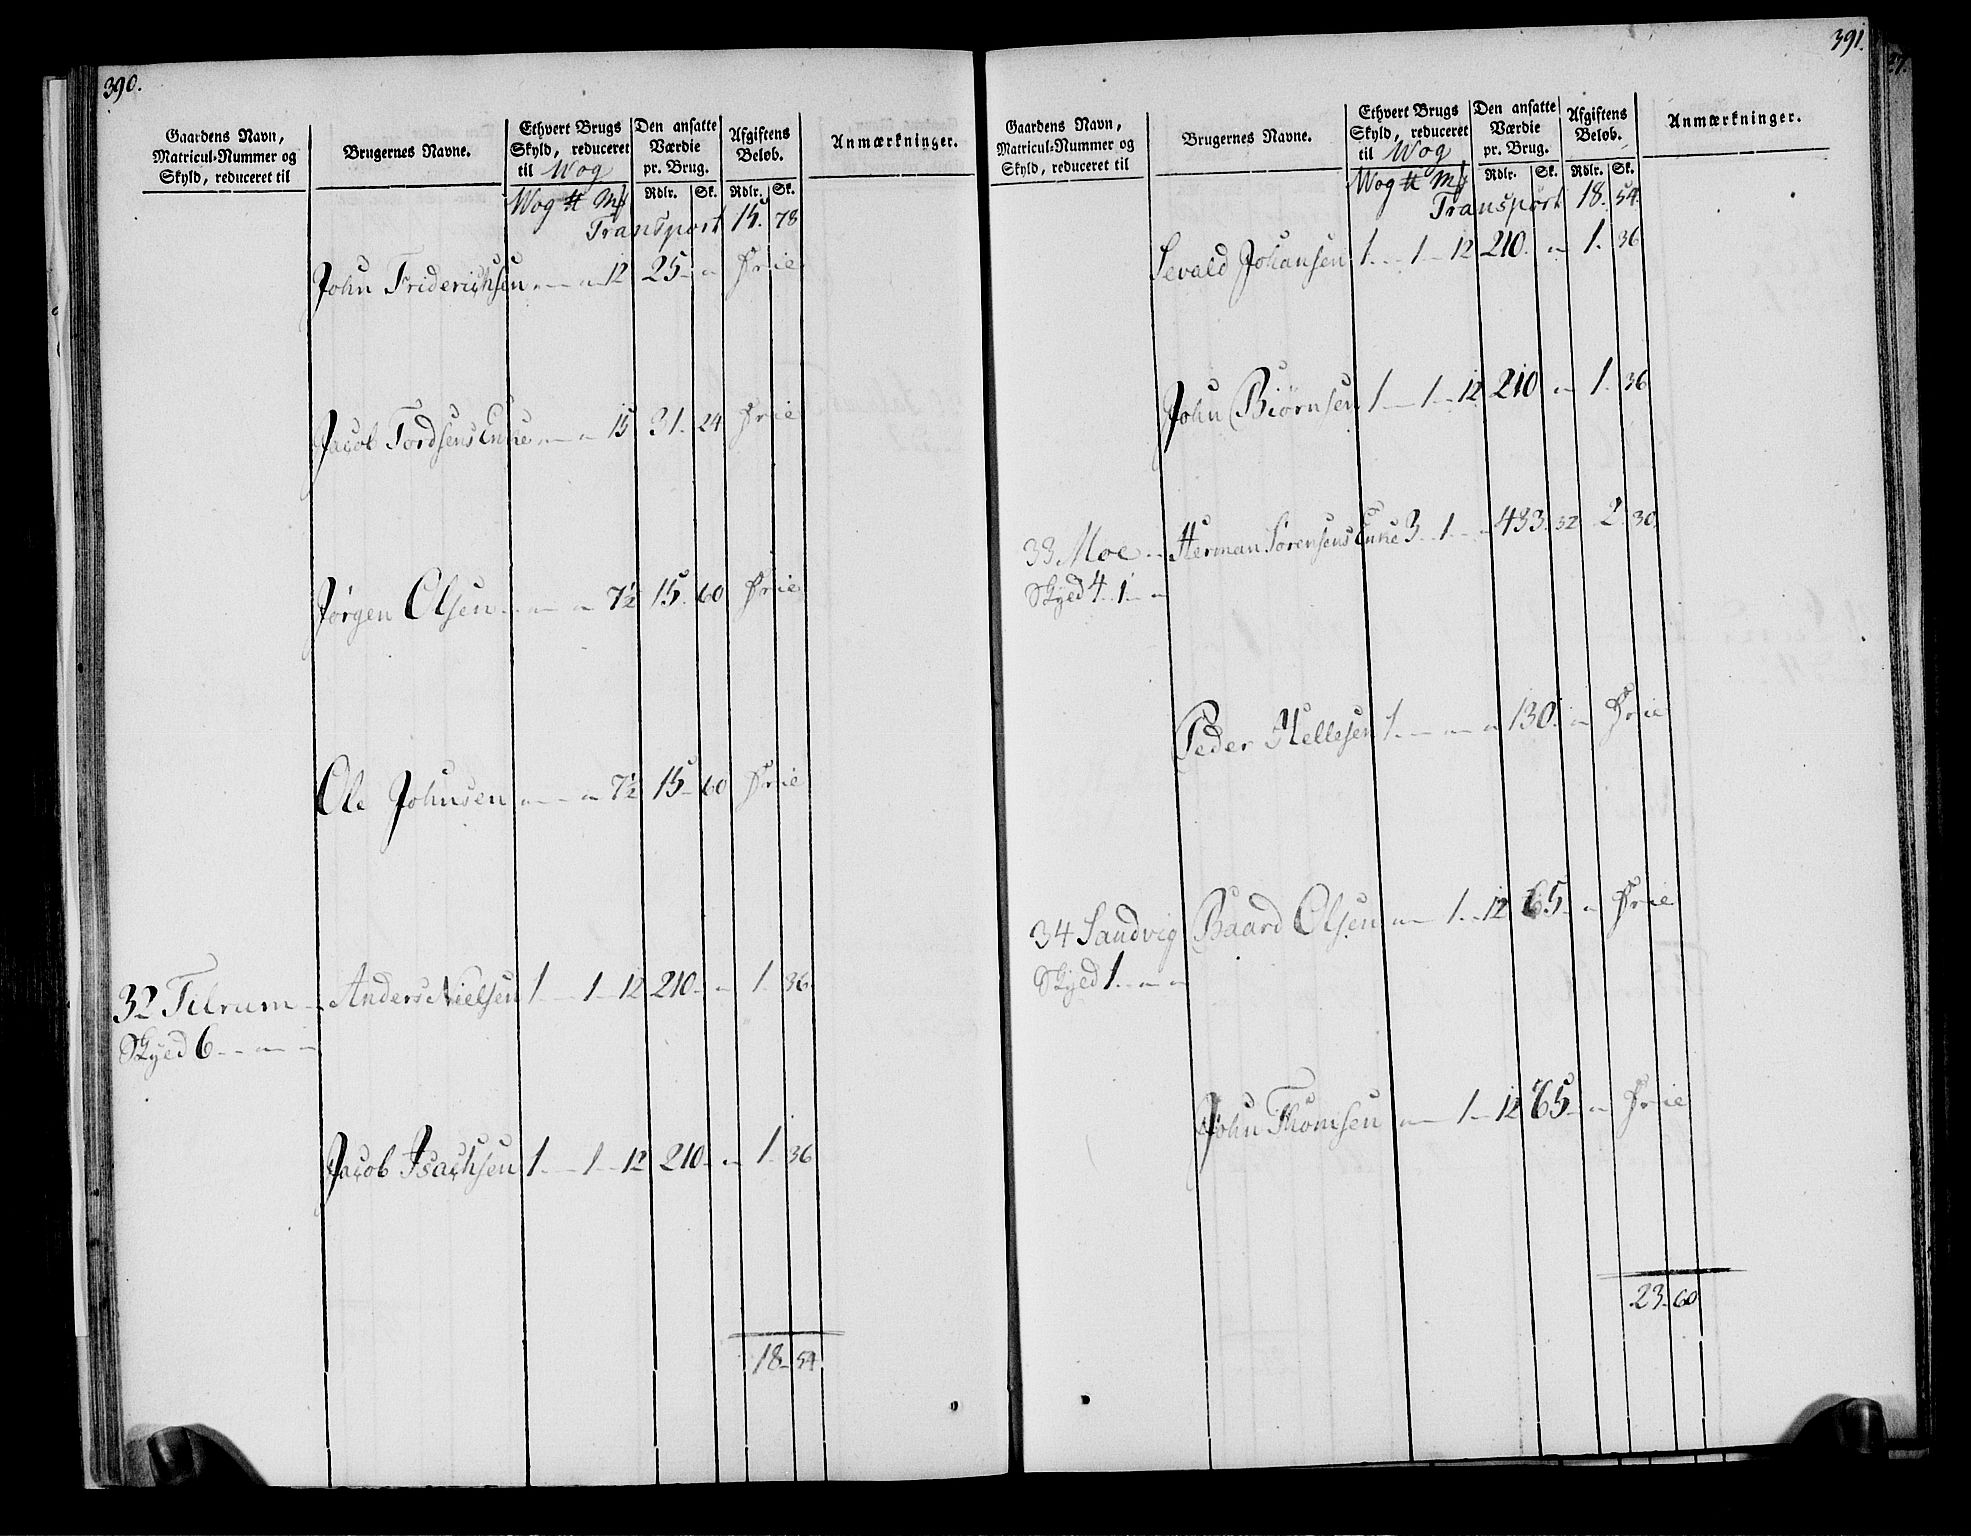 390.
Gaardens Navn, Matricul-Nummer og Skyld, reduceret til | Brugernes Navne. | Ethvert Brugs Skyld, reduceret til Wog | Den ansatte Værdie pr. Brug. | Afgiftens Beløb. | Anmærkninger.
Wog ℔ Mk | Rdlr. | Sk. | Rdlr. | Sk.
Transport 15. 78
John Friderichsen - - - 12 25 - - Frie
Jacob Tordsens Enke - - - 15 31. 24 Frie
Jørgen Olsen - - - 7½ 15. 60 Frie
Ole Johnsen - - - 7½ 15 - 60 Frie
32 Tilrum - Anders Nielsen 1 - 1 - 12 210 - - 1. 36.
Skyld 6 - - -
Jacob Isachsen 1 - 1 - 12 210 - - 1. 36
18 - 54
391.
Gaardens Navn, Matricul-Nummer og Skyld, reduceret til | Brugernes Navne. | Ethvert Brugs Skyld, reduceret til Wog | Den ansatte Værdie pr. Brug. | Afgiftens Beløb. | Anmærkninger.
Wog ℔ Mk | Rdlr. | Sk. | Rdlr. | Sk.
Transport 18. 54.
Sevald Johansen 1 - 1 - 12 210. - 1. 36
John Biørnsen 1 - 1 - 12 210 - 1. 36
33 Moe - Herman Sørensens Enke 3 - 1 - - 433. 32 2. 30.
Skyld 4 - 1 - -
Peder Hellesen 1 - - - 130. - Frie
34 Sandvig Baard Olsen - 1 - 12 65 - - Frie
Skyld 1 - - -
John Thomsen - 1 - 12 65 - - Frie
23 - 60